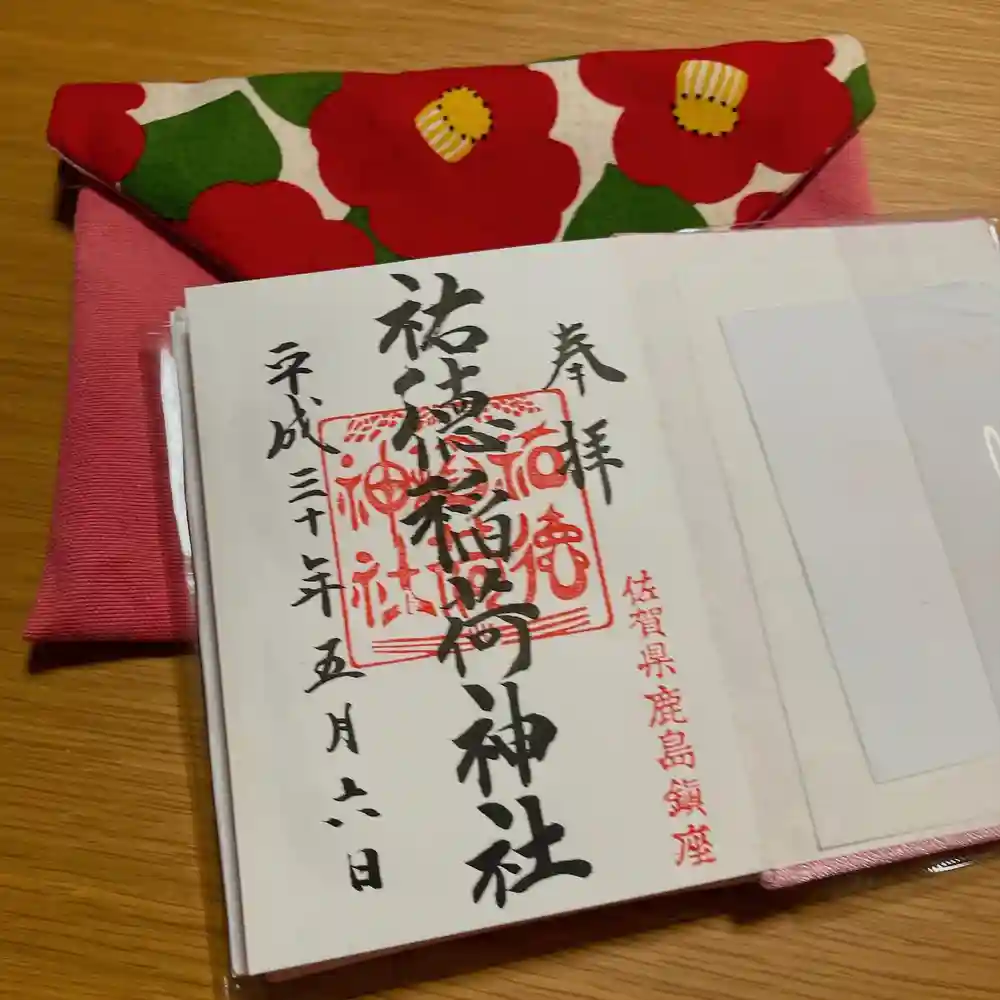 奉拝
佐賀県鹿島鎮座
祐徳稲荷神社
祐徳稲荷神社
平成三十年五月六日